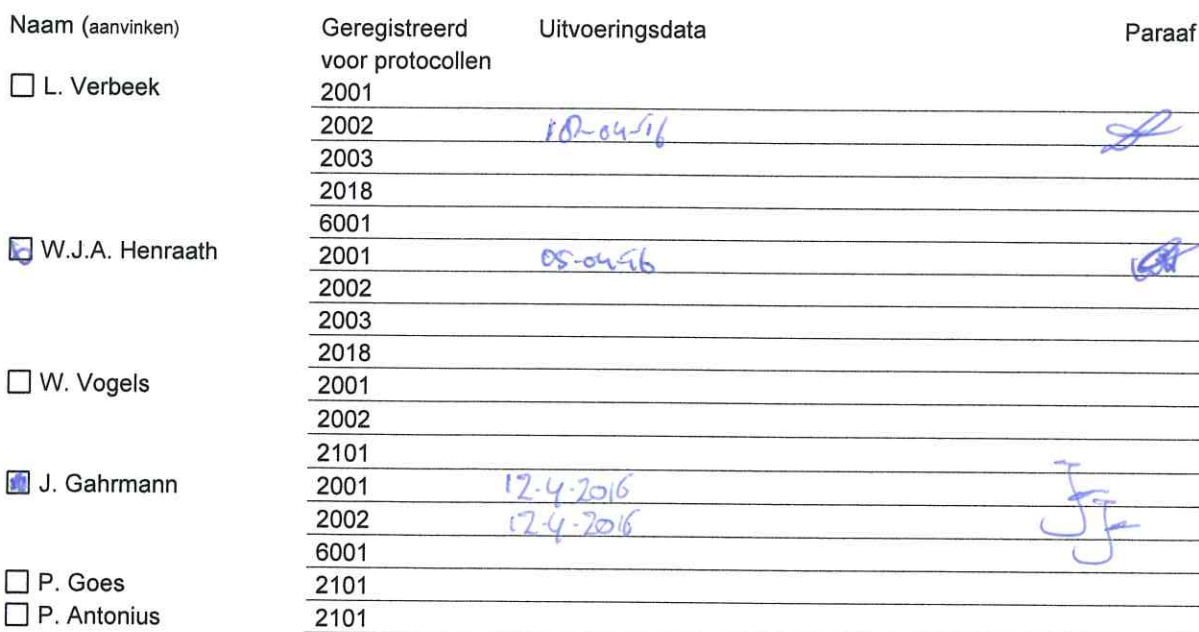 Naam (aanvinken) Geregistreerd Uitvoeringsdata Paraaf
voor protocollen
L. Verbeek
2001
2002
2003
2018
6001
W.J.A. Henraath 2001 05-04-16
2002
2003
2018
W. Vogels 2001
2002
2101
J. Gahrmann 2001 12-4-2016
2002 12-4-2016
6001
P. Goes 2101
P. Antonius 2101